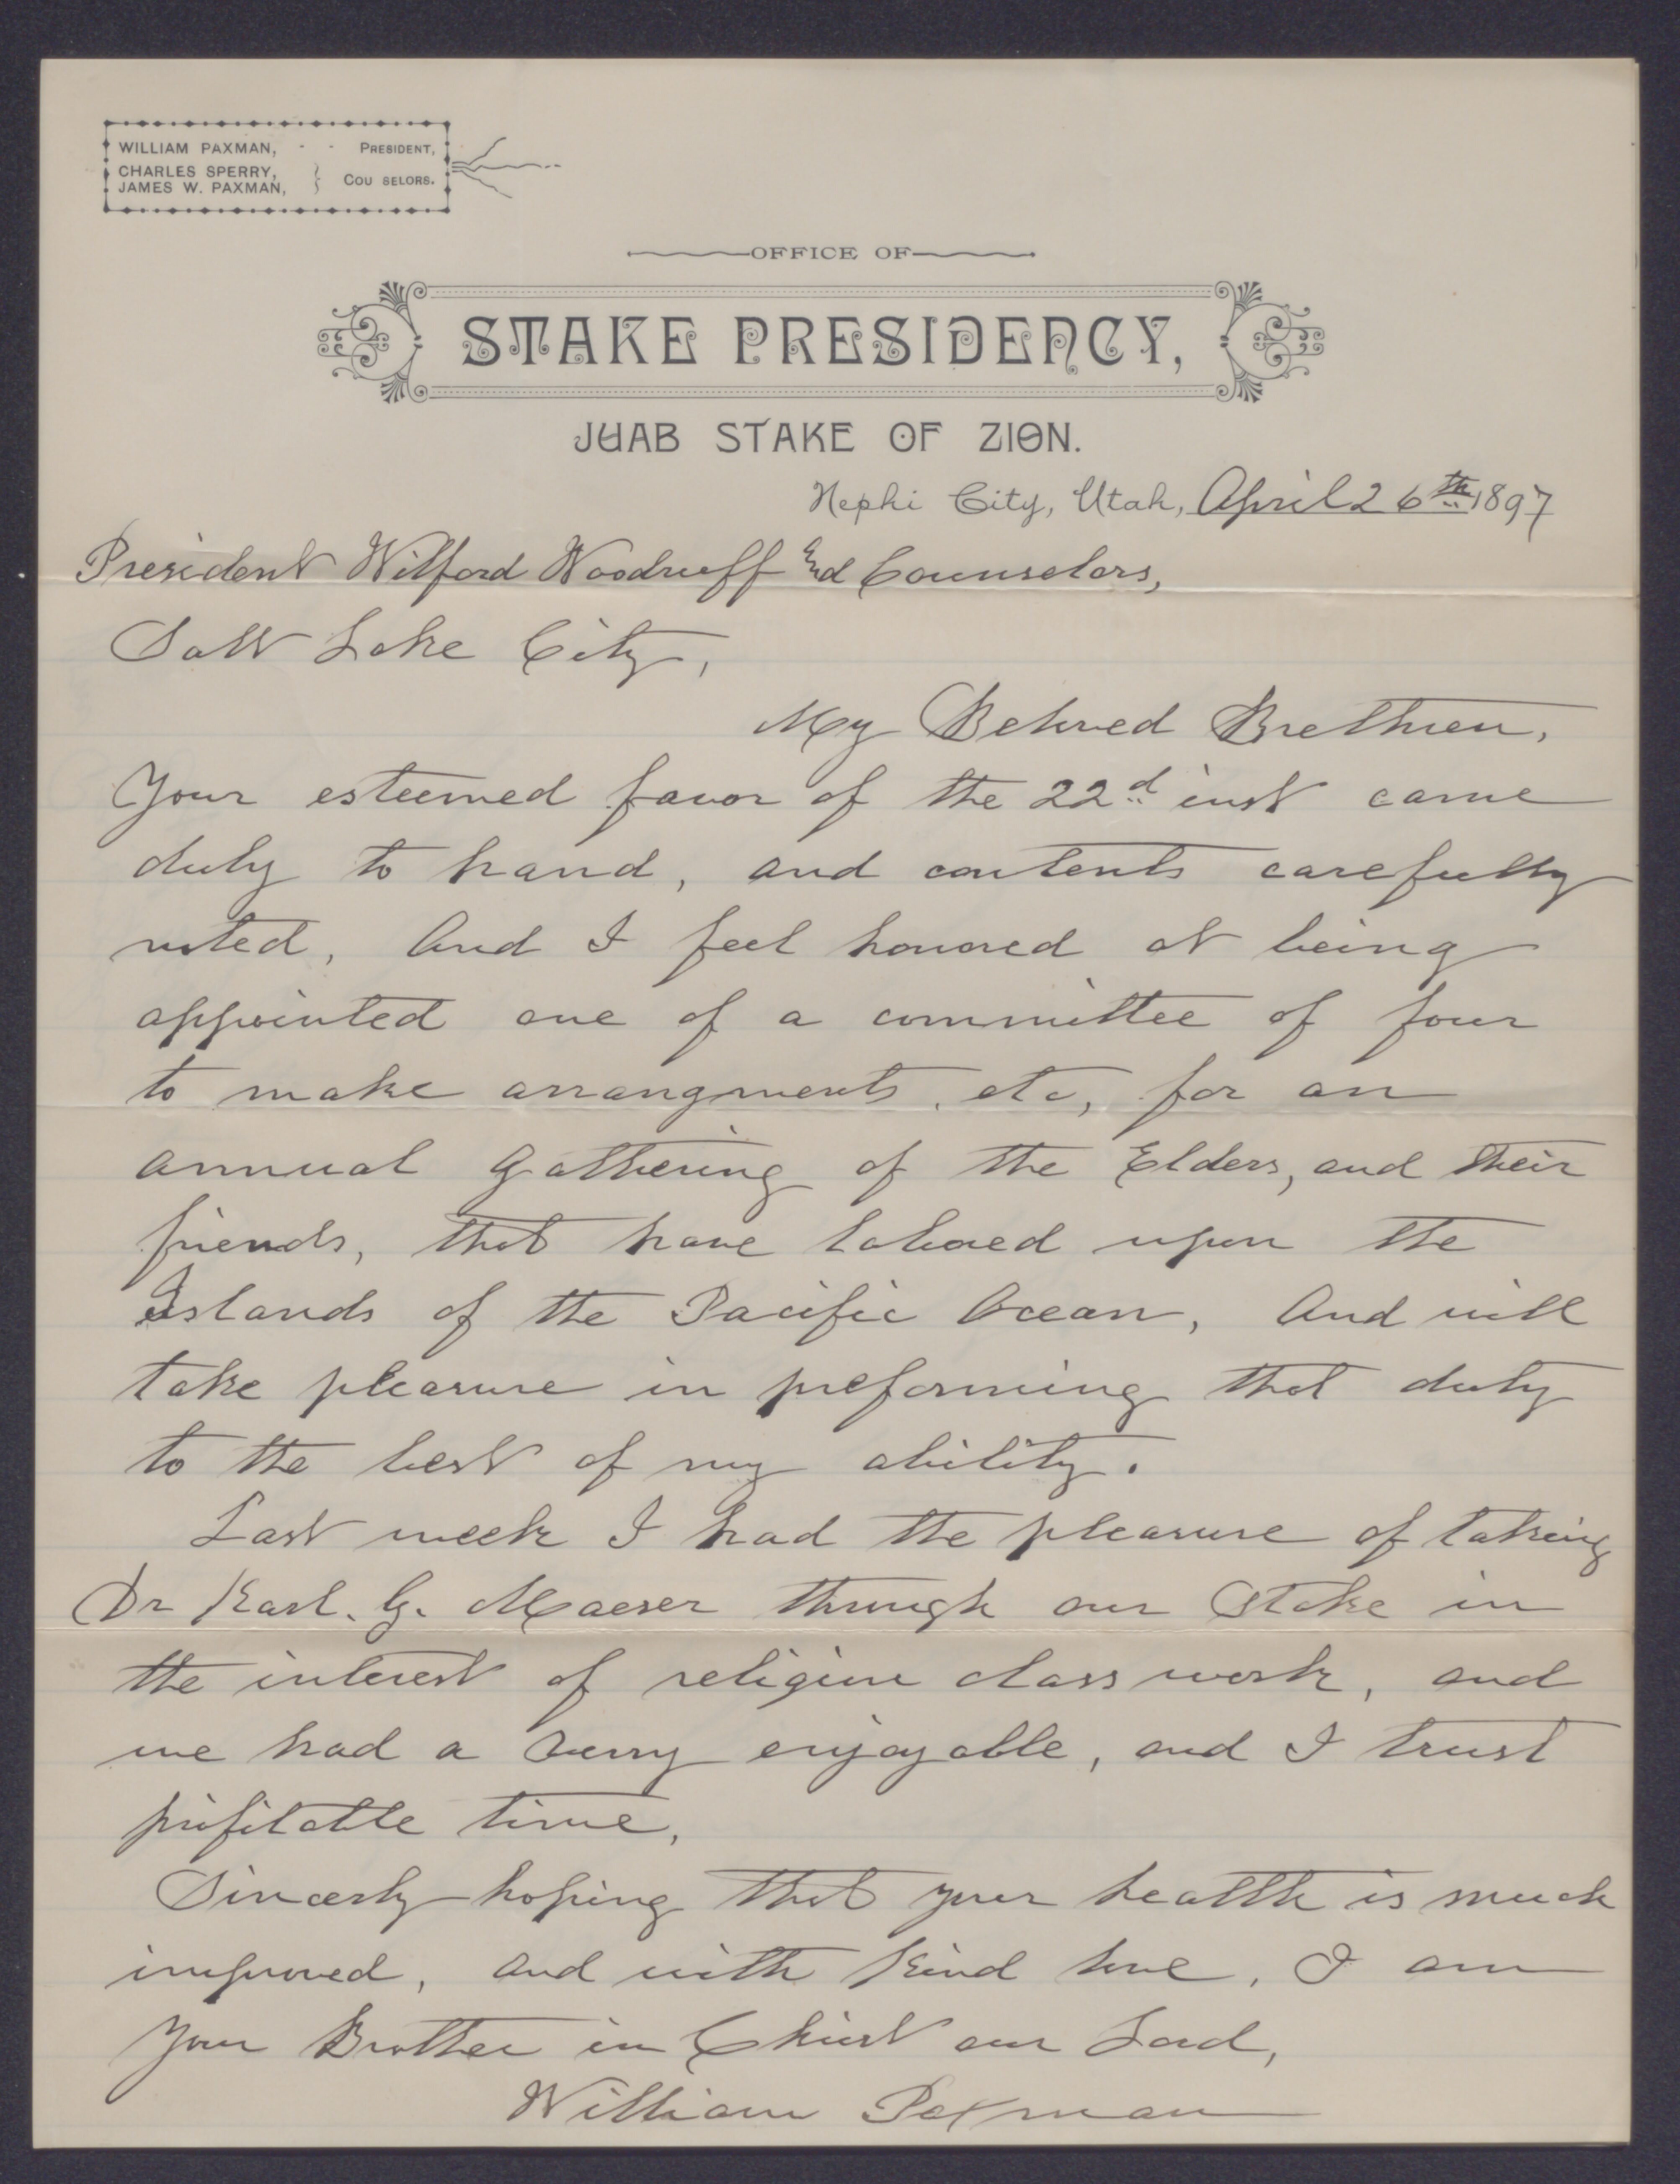 WILLIAM PAXMAN, - - PRESIDENT,
CHARLES SPERRY,
JAMES W. PAXMAN, } COU SELORS.
OFFICE OF
STAKE PRESIDENCY,
JUAB STAKE OF ZION.
Nephi City, Utah, April 26th 1897
President Wilford Woodruff and Counselors,
Salt Lake City,
My Beloved Brethren,
Your esteemed favor of the 22d inst came
duly to hand, and contents carefully
noted, And I feel honored at being
appointed one of a committee of four
to make arrangments, etc, for an
annual gathering of the Elders, and their
friends, that have labored upon the
Islands of the Pacific Ocean, And will
take pleasure in preforming that duty
to the best of my ability.
Last week I had the pleasure of taking
Dr Karl. G. Maeser through our Stake in
the interest of religion class work, and
we had a very enjoyable, and I trust
profitable time,
Sincerly hoping that your health is much
improved, and with kind love, I am
Your Brother in Christ our Lord,
William Paxman